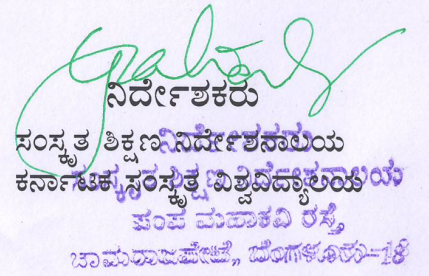 ನಿರ್ದೇಶಕರು
ಸಂಸ್ಕೃತ ಶಿಕ್ಷಣ ನಿರ್ದೇಶನಾಲಯ
ಕರ್ನಾಟಕ ಸಂಸ್ಕೃತ ವಿಶ್ವವಿದ್ಯಾಲಯ
ಪಂಪ ಮಹಾಕವಿ ರಸ್ತೆ,
ಚಾಮರಾಜಪೇಟೆ, ಬೆಂಗಳೂರು-18